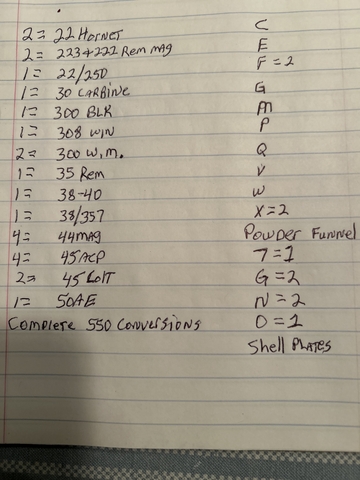 2= 22 Hornet
2= 223+222 Rem mag
1= 22/250
1= 30 CARBine
1= 300 BLK
1= 308 WIN
2= 300 W.M.
1= 35 Rem
1= 38-40
1= 38/357
4= 44MAG
4= 45ACP
2= 45 Colt
1= 50AE
Complete 550 Conversions
C
E
F=2
G
M
P
Q
V
W
X=2
Powder Funnel
7=1
G=2
N=2
O=1
Shell PLATES